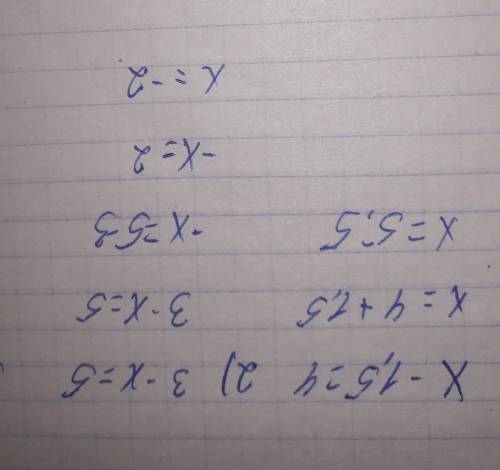 x - 1,5 = 4 2) 3 - x = 5
x = 4 + 1,5 3 - x = 5
x = 5,5 -x = 5-3
-x = 2
x = -2